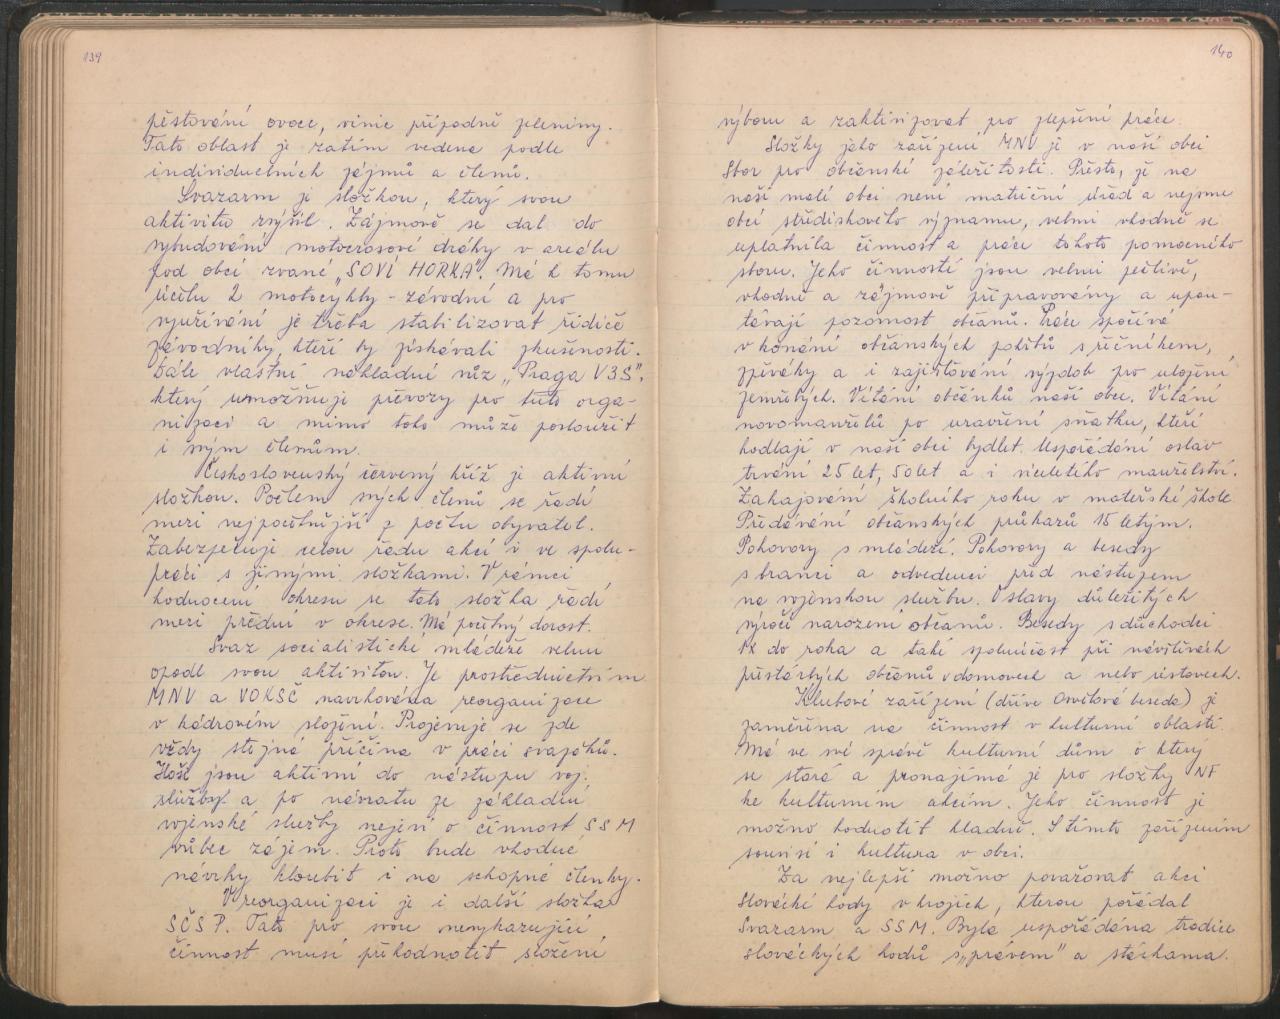 139
pěstování ovoce, vinic případně zeleniny.
Tato oblast je zatím vedena podle
individuelních zájmů a členů.
Svazarm je složkou, který svou
aktivitu zvýšil. Zájmově se dal do
vybudování motocrosové dráhy v areálu
pod obcí zvané „SOVÍ HORKA". Má k tomu
účelu 2 motocykly - závodní a pro
využívání je třeba stabilizovat řidiče
závodníky, kteří by získávali zkušenosti.
Dále vlastní nákladní vůz „Praga V3S",
který umožňuje převozy pro tuto orga-
nizaci a mimo toho může posloužit
i svým členům.
Československý červený kříž je aktivní
složkou. Počtem svých členů se řadí
mezi nejpočetnější z počtu obyvatel.
Zabezpečuje celou řadu akcí i ve spolu-
práci s jinými složkami. V rámci
hodnocení okresu se tato složka řadí
mezi přední v okrese. Má početný dorost.
Svaz socialistické mládeže velmi
opadl svou aktivitou. Je prostřednictvím
MNV a VOKSČ navrhována reorganizace
v kádrovém složení. Projevuje se zde
vždy stejná příčina v práci svazáků.
Hoši jsou aktivní do nástupu voj.
služby a po návratu ze základní
vojenské služby nejeví o činnost SSM
vůbec zájem. Proto bude vhodné
návrhy skloubit i na schopné členky.
V reorganizaci je i další složka
SČSP. Tato pro svou nevykazující
činnost musí přehodnotit složení
140
výboru a zaktivizovat pro zlepšení práce.
Složky jako zařízení MNV je v naší obci
Sbor pro občanské záležitosti. Přesto, že na
naší malé obci není matriční úřad a nejsme
obcí střediskového významu, velmi vhodně se
uplatnila činnost a práce tohoto pomocného
sboru. Jeho činnosti jsou velmi pečlivě,
vhodně a zájmově připravovány a upou-
távají pozornost občanů. Práce spočívá
v konání občanských pohřbů s řečníkem,
zpěváky a i zajišťování výzdob pro uložení
zemřelých. Vítání občánků naší obce. Vítání
novomanželů po uzavření sňatku, kteří
hodlají v naší obci bydlet. Uspořádání oslav
trvání 25 let, 50 let a i víceletého manželství.
Zahajování školního roku v mateřské škole
Předávání občanských průkazů 15 letým.
Pohovory s mládeží. Pohovory a besedy
s branci a odvedenci před nástupem
na vojenskou službu. Oslavy důležitých
výročí narození občanů. Besedy s důchodci
1x do roka a také spoluúčast při návštěvách
přestárlých občanů v domovech a nebo ústavech.
Klubové zařízení (dříve Osvětová beseda) je
zaměřena na činnost v kulturní oblasti.
Má ve své správě kulturní dům o který
se stará a pronajímá je pro složky NF
ke kulturním akcím. Jeho činnost je
možno hodnotit kladně. S tímto zařízením
souvisí i kultura v obci.
Za nejlepší možno považovat akci
Slovácké hody v krojích, kterou pořádal
Svazarm a SSM. Byla uspořádána tradice
slováckých hodů s „právem" a stárkama.